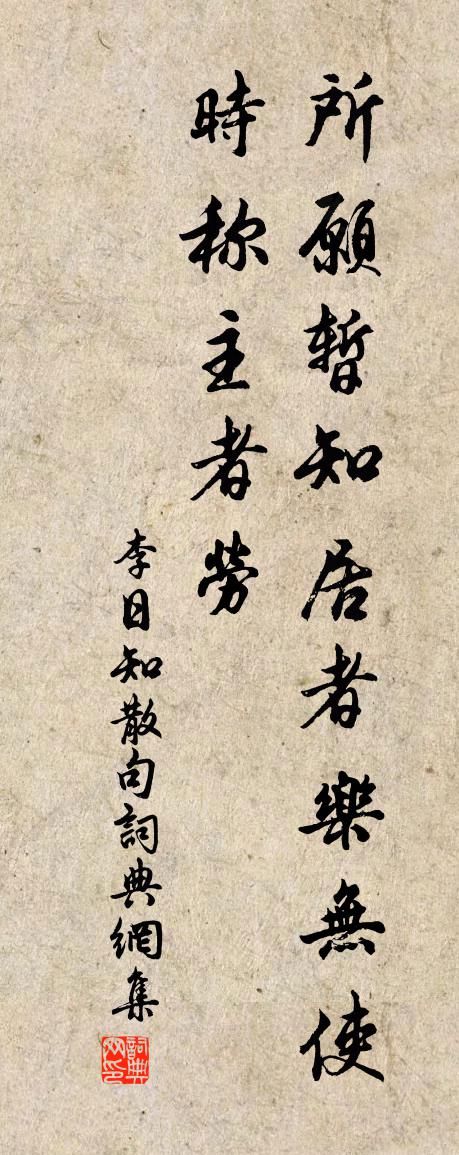 所願暫知居者樂無使
時称主者勞
李日知散句詞典網集
詞典網印